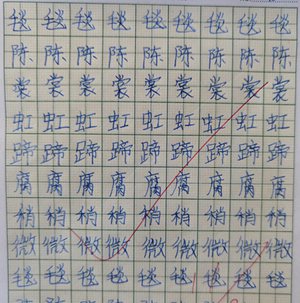 毯毯毯毯毯毯毯毯毯
陈陈陈陈陈陈陈陈陈
裳裳裳裳裳裳裳裳裳
虹虹虹虹虹虹虹虹虹
蹄蹄蹄蹄蹄蹄蹄蹄蹄
腐腐腐腐腐腐腐腐腐
稍稍稍稍稍稍稍稍稍
微微微微微微微微微
毯毯毯毯毯毯毯毯毯